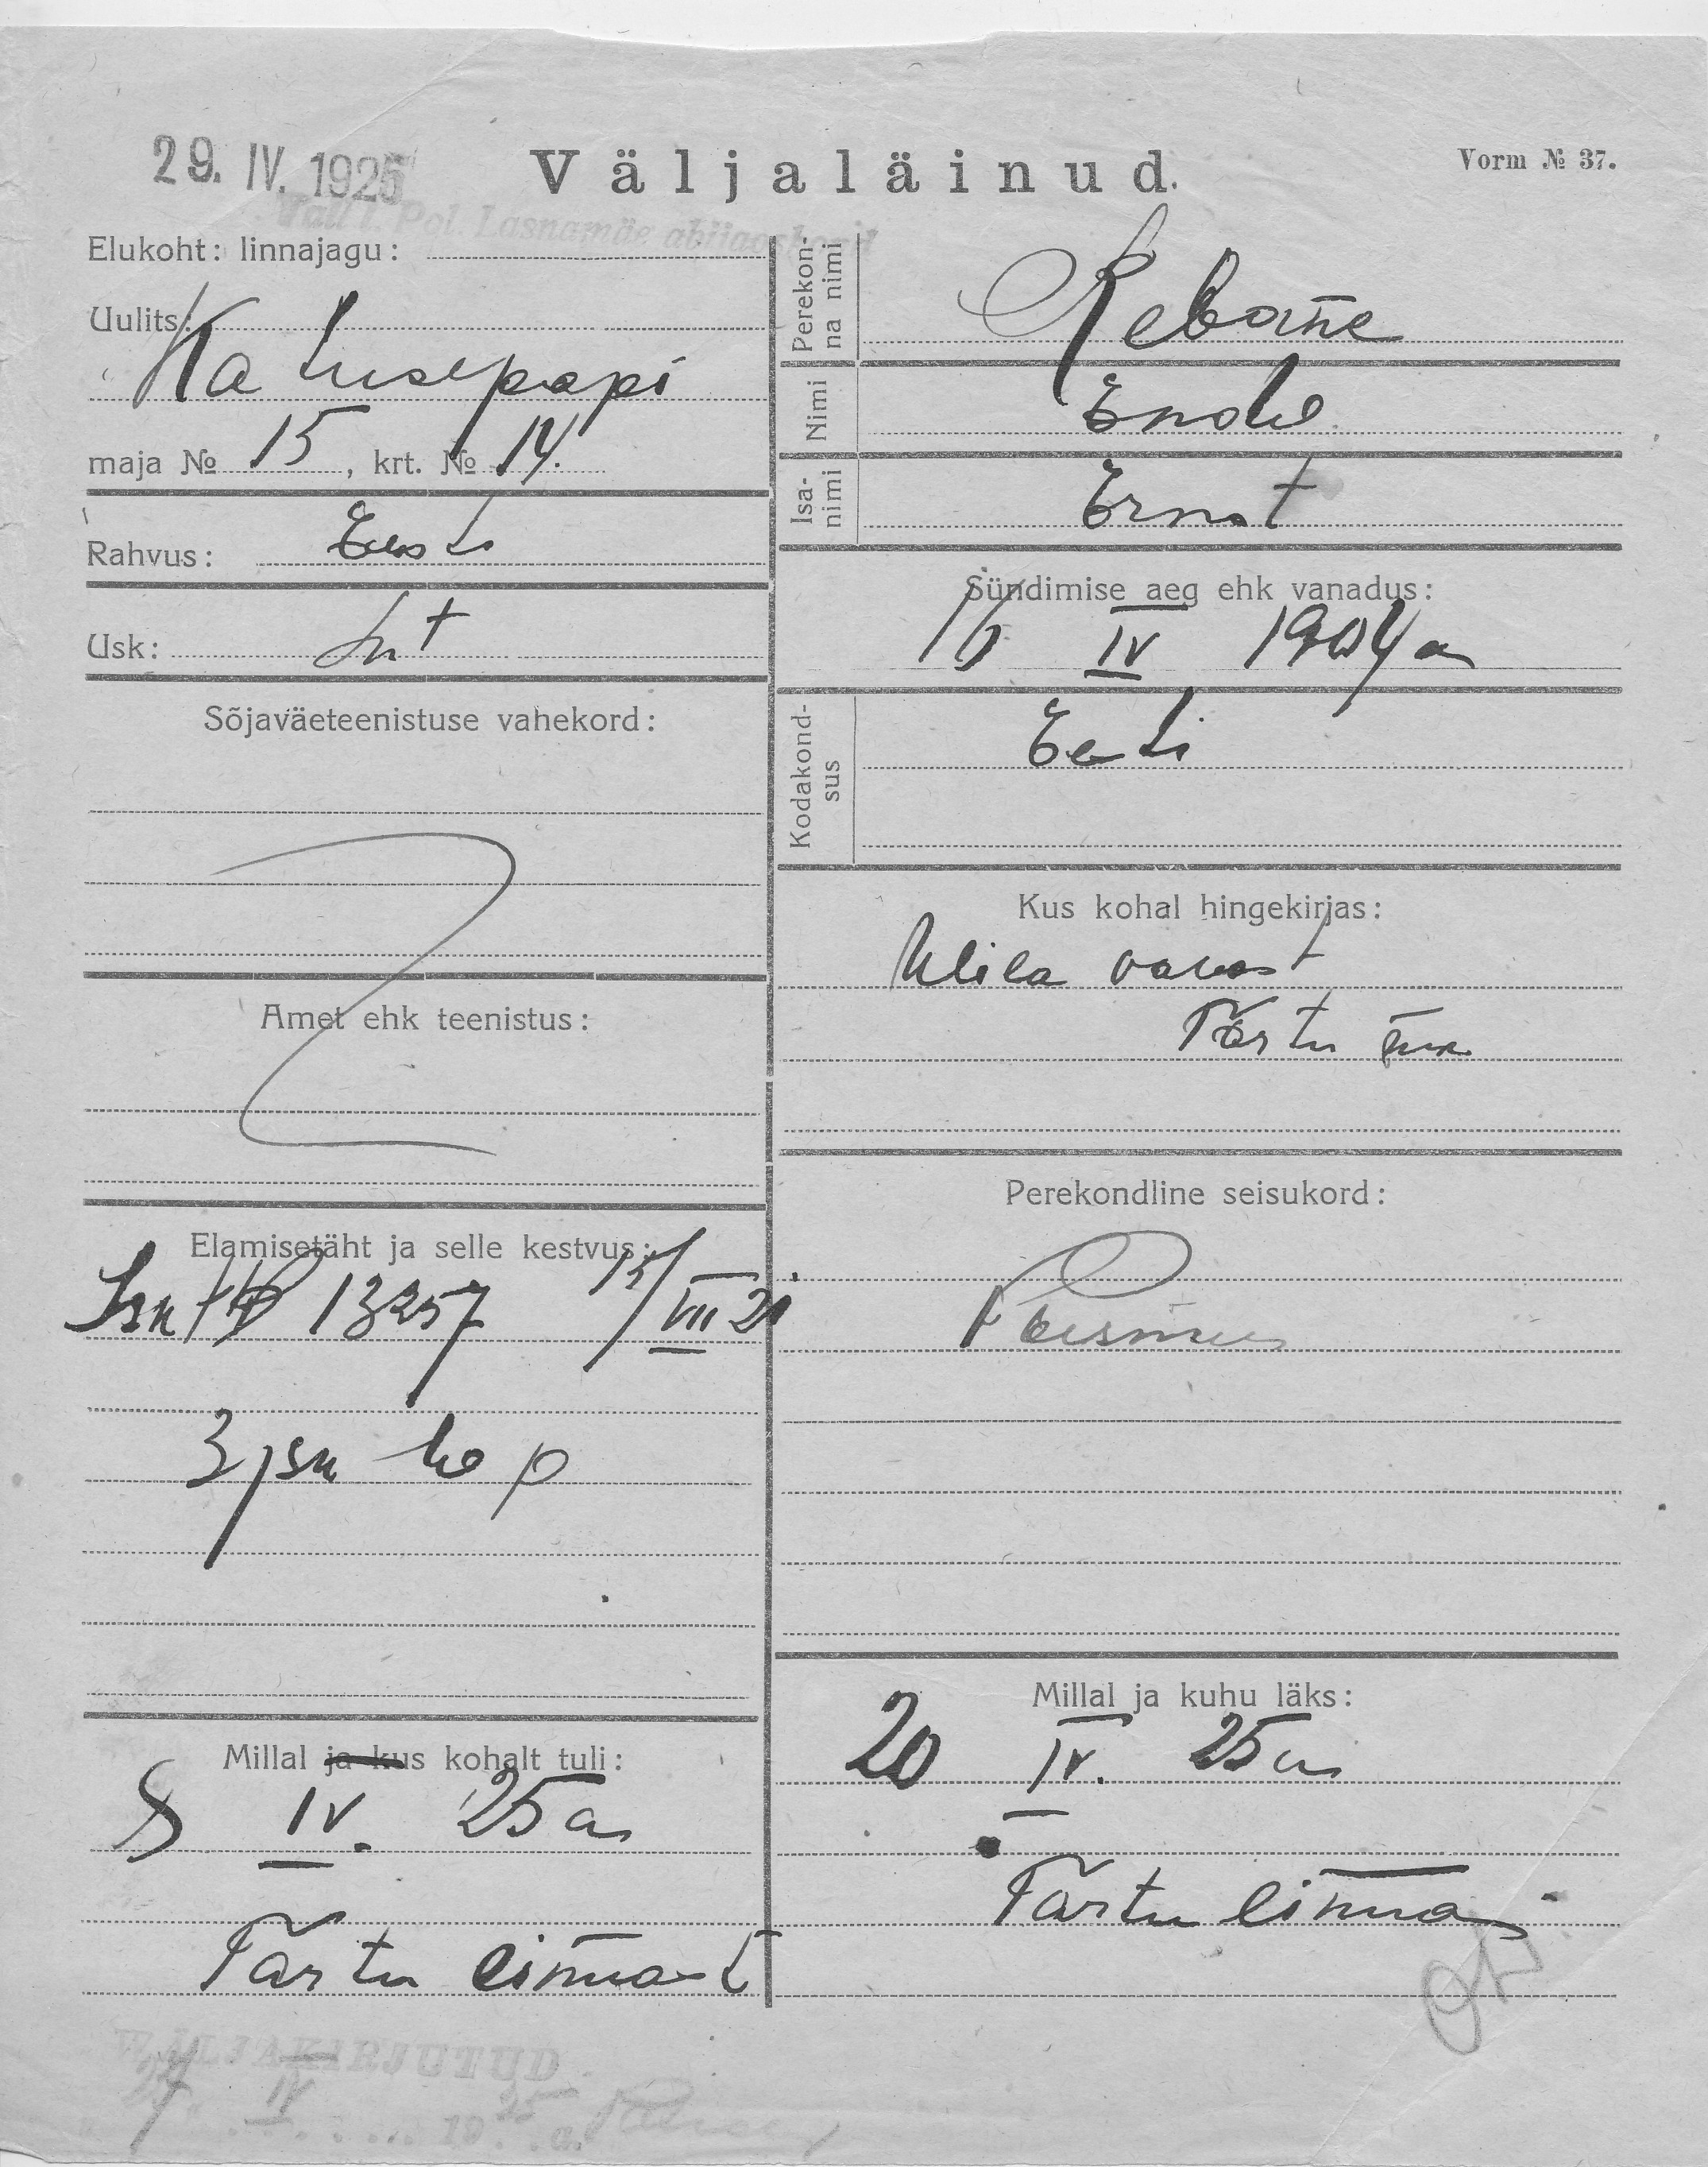 29. IV. 1925
Väljaläinud.
Vorm № 37.
Tall. I. Pol. Lasnamäe
Elukoht: linnajagu:
Uulits:
Katusepapi
maja № 15, krt. № 14.
Rahvus: Eesti
Usk: Lut
Sõjaväeteenistuse vahekord:
Amet ehk teenistus:
Elamisetäht ja selle kestvus:
13257 15/VII 21
3 jsk
Millal ja kus kohalt tuli:
8 IV. 25 a
Tartu linnast
Perekonna nimi
Rebane
Nimi
Isanimi
Ernst
Sündimise aeg ehk vanadus:
16 IV 1904 a
Kodakondsus
Eesti
Kus kohal hingekirjas:
Ulila vallast
Tartu
Perekondline seisukord:
Poismees
Millal ja kuhu läks:
20 IV. 25 a
Tartu linna
WÄLJAKIRJUTUD
IV
19 25 a.